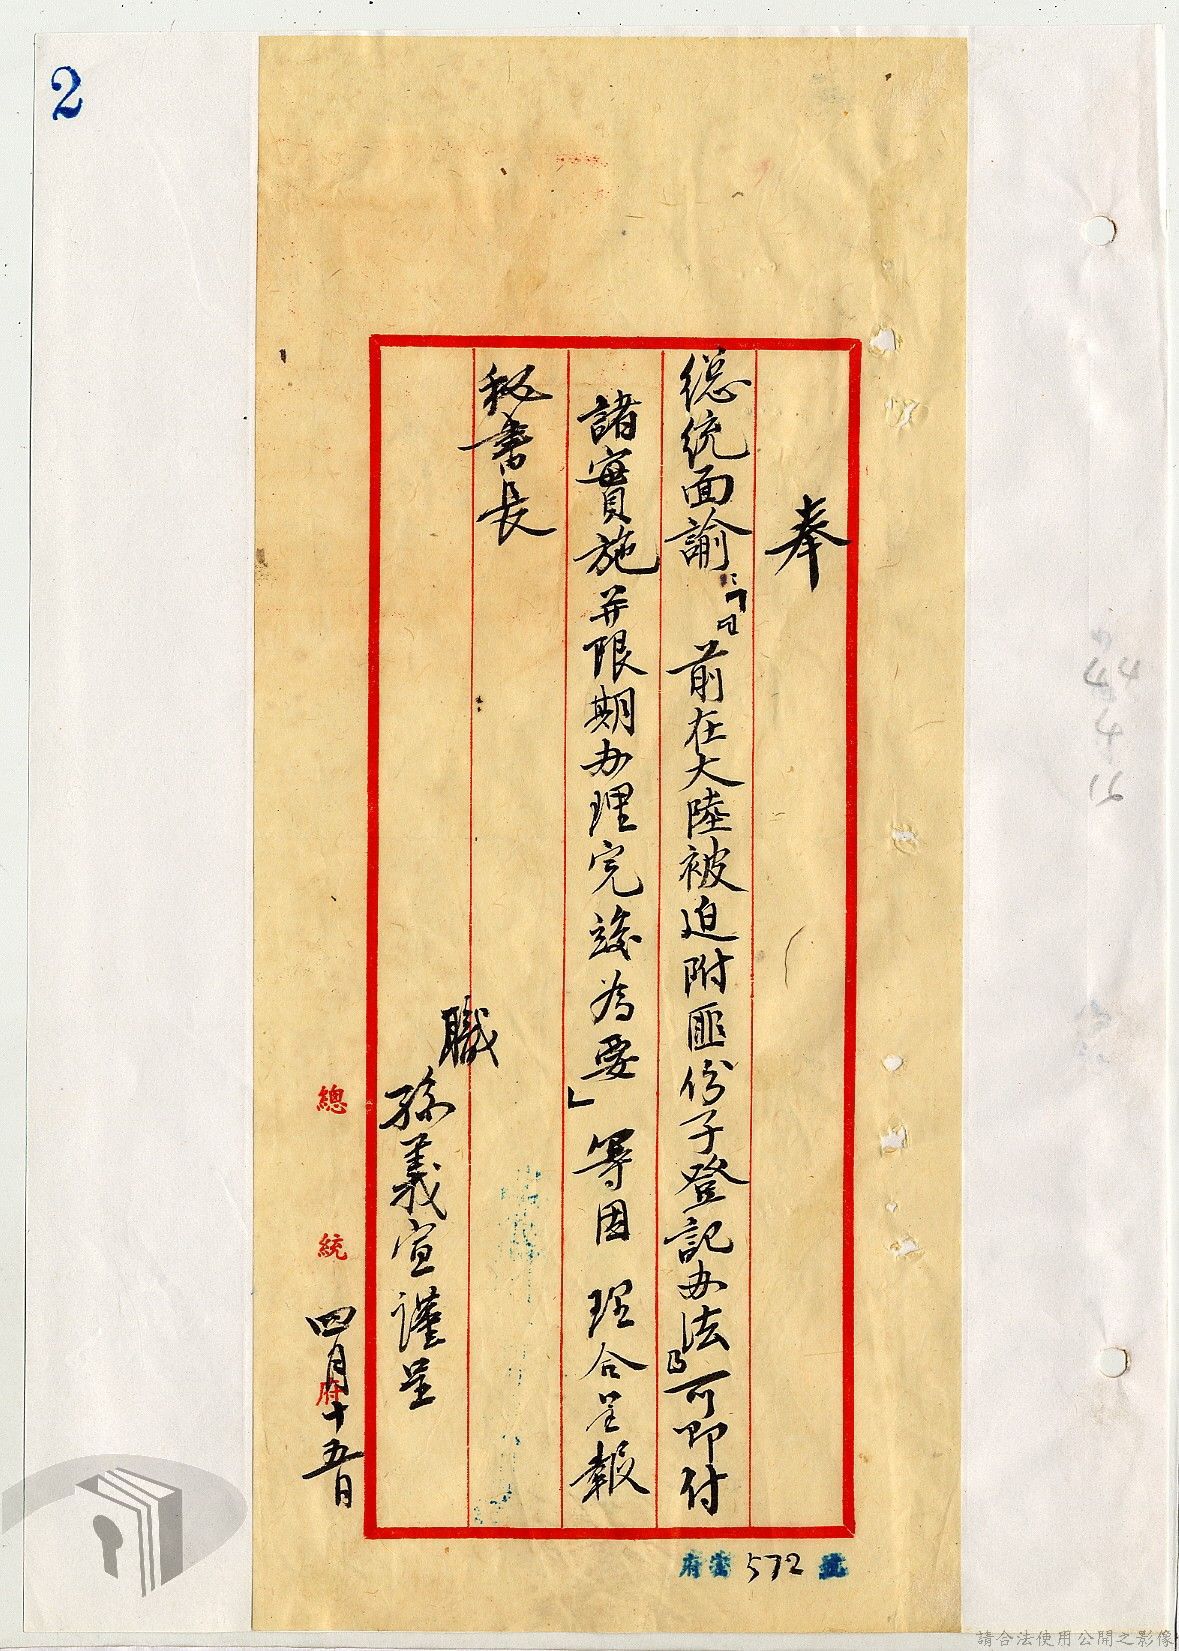 2
奉
總統面諭：「『前在大陸被迫附匪份子登記办法』可即付
諸實施并限期办理完竣為要」等因 理合呈報
秘書長
職
孫義宣謹呈
四月十五日
總統府
府 572 號
44
4
16
請合法使用公開之影像